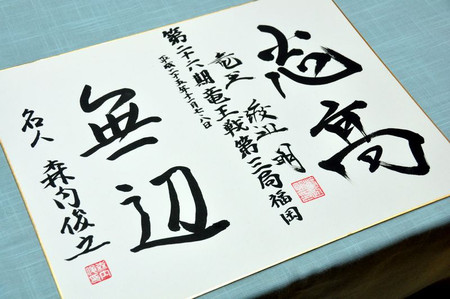 志高
竜王 渡辺 明
第二十六期竜王戦第三局福岡
平成二十五年十一月七、八日
無辺
名人 森内俊之